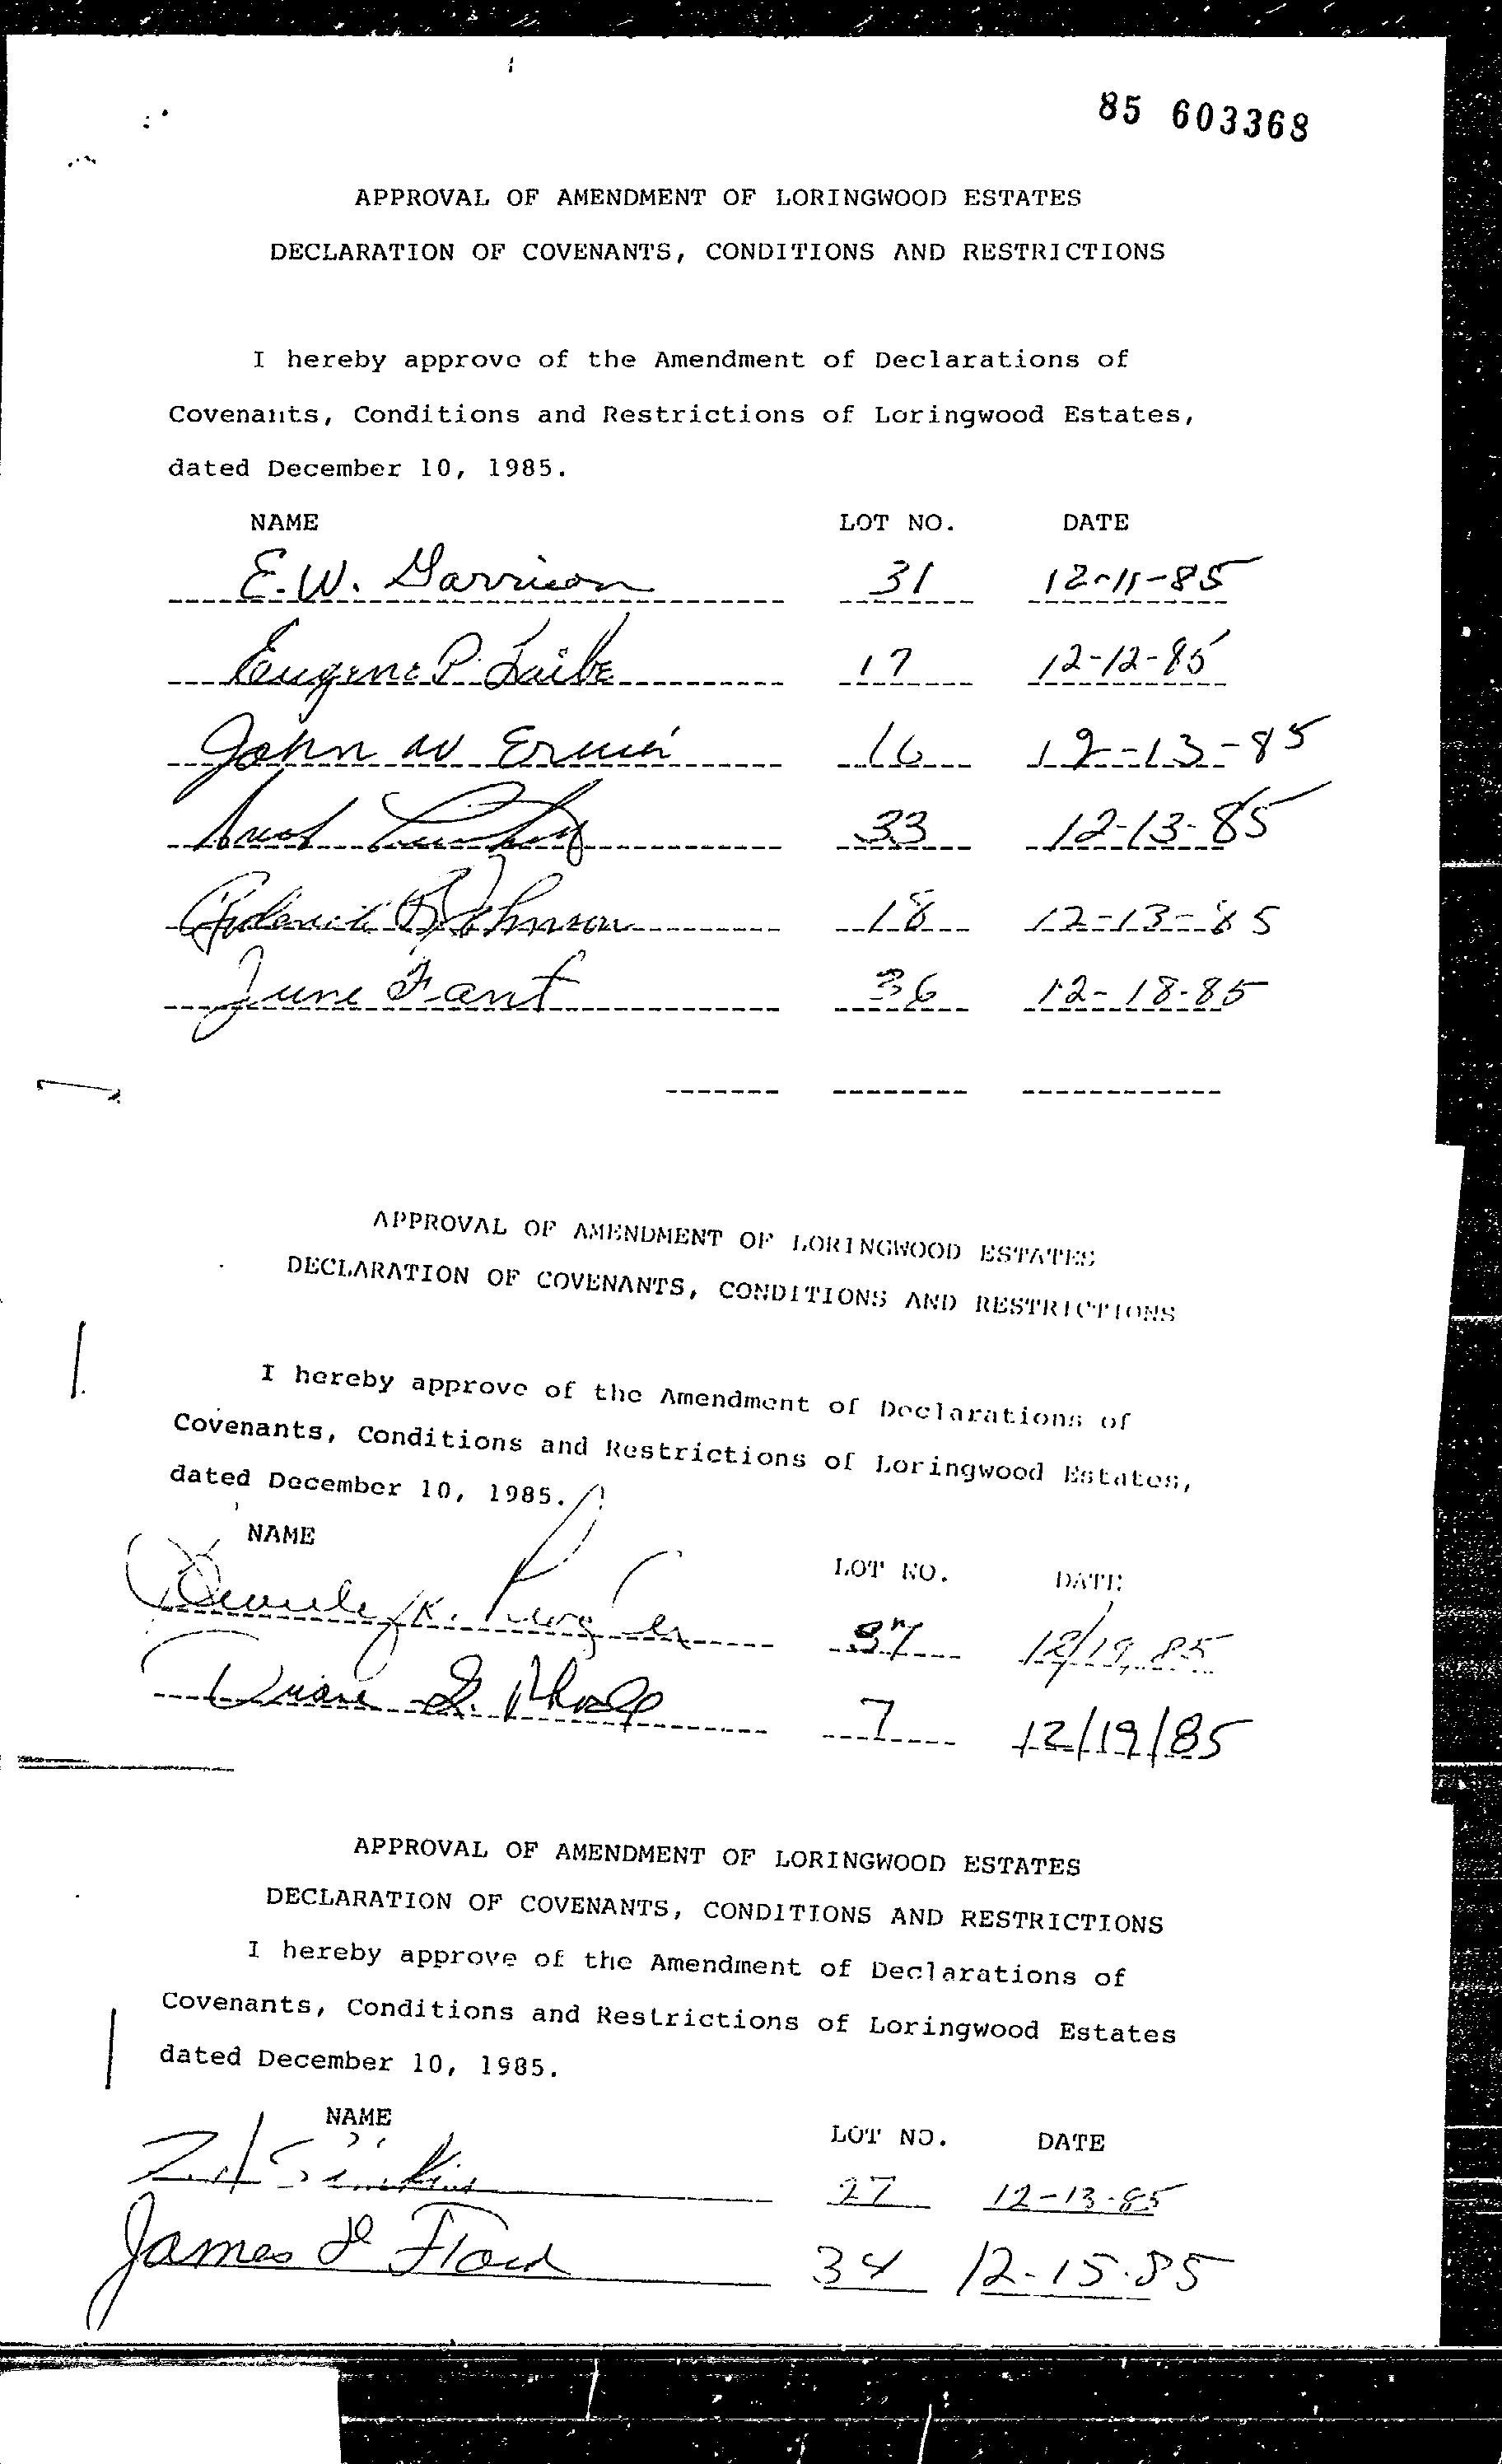 85 603368
APPROVAL OF AMENDMENT OF LORINGWOOD ESTATES
DECLARATION OF COVENANTS, CONDITIONS AND RESTRICTIONS
I hereby approve of the Amendment of Declarations of
Covenants, Conditions and Restrictions of Loringwood Estates,
dated December 10, 1985.
NAME LOT NO. DATE
E.W. Garrison 31 12-11-85
Eugene P. Laibe 17 12-12-85
John W Erwin 16 12-13-85
33 12-13-85
Johnson 18 12-13-85
June Fant 36 12-18-85
APPROVAL OF AMENDMENT OF LORINGWOOD ESTATES
DECLARATION OF COVENANTS, CONDITIONS AND RESTRICTIONS
I hereby approve of the Amendment of Declarations of
Covenants, Conditions and Restrictions of Loringwood Estates,
dated December 10, 1985.
NAME LOT NO. DATE
K. 37 12/19/85
Duane 7 12/19/85
APPROVAL OF AMENDMENT OF LORINGWOOD ESTATES
DECLARATION OF COVENANTS, CONDITIONS AND RESTRICTIONS
I hereby approve of the Amendment of Declarations of
Covenants, Conditions and Restrictions of Loringwood Estates
dated December 10, 1985.
NAME LOT NO. DATE
27 12-13-85
James 34 12-15-85